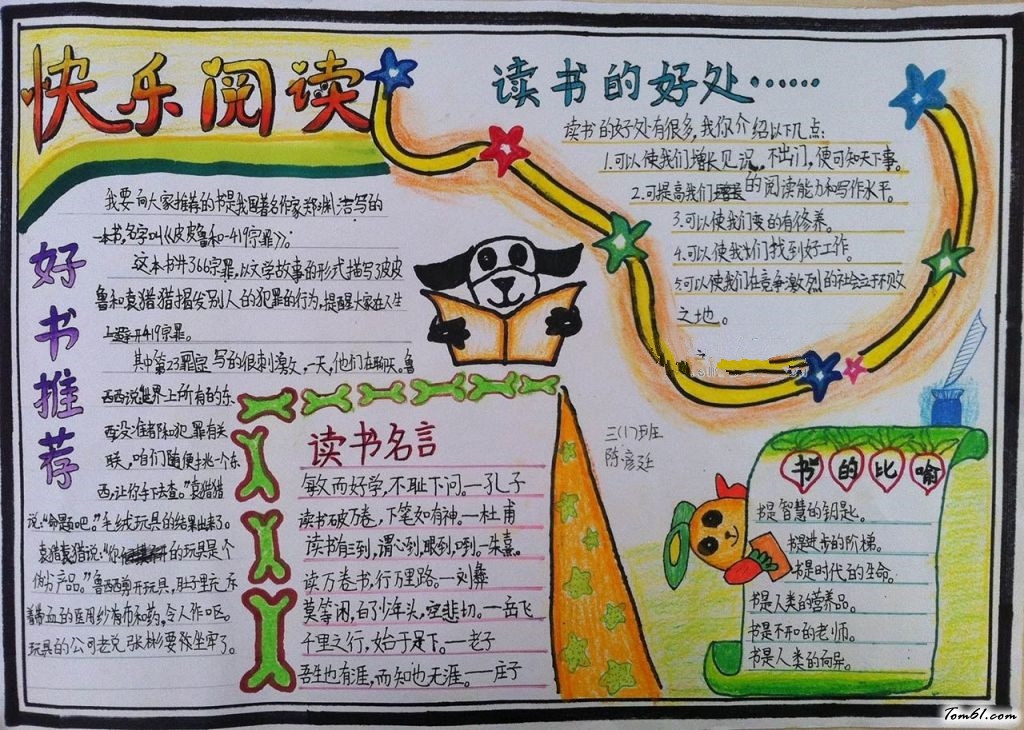 快乐阅读
好书推荐
我要向大家推荐的书是我国著名作家郑渊洁写的
一本书,名字叫《皮皮鲁和419宗罪》。
这本书共366宗罪,以文学故事的形式描写皮皮
鲁和袁猎猎揭发别人的犯罪的行为,提醒大家在人生
上避开419宗罪。
其中第23罪宗写的很刺激,一天,他们在聊天。鲁
西西说世界上所有的东
西没准都和犯罪有关
联,咱们随便挑一个东
西,让你手下去查。”袁猎猎
说:“命题吧。”毛绒玩具的结果出来了。
袁猎猎说:“你的玩具是个
伪劣产品。”鲁西西剪开玩具,肚子里
带血的医用纱布和药,令人作呕。
玩具的公司老总张彬要被坐牢了。
读书的好处……
读书的好处有很多,我你介绍以下几点:
1.可以使我们增长见识。不出门,便可知天下事。
2.可提高我们的阅读能力和写作水平。
3.可以使我们变的有修养。
4.可以使我们找到好工作。
5.可以使我们在竞争激烈的社会立于不败
之地。
三(17)班
陈彦廷
读书名言
敏而好学,不耻下问。—孔子
读书破万卷,下笔如有神。—杜甫
读书有三到,谓心到,眼到,口到。—朱熹。
读万卷书,行万里路。—刘彝
莫等闲,白了少年头,空悲切。—岳飞
千里之行,始于足下。—老子
吾生也有涯,而知也无涯。—庄子
书的比喻
书是智慧的钥匙。
书是进步的阶梯。
书是时代的生命。
书是人类的营养品。
书是不开口的老师。
书是人类的向导。
Tom61.com